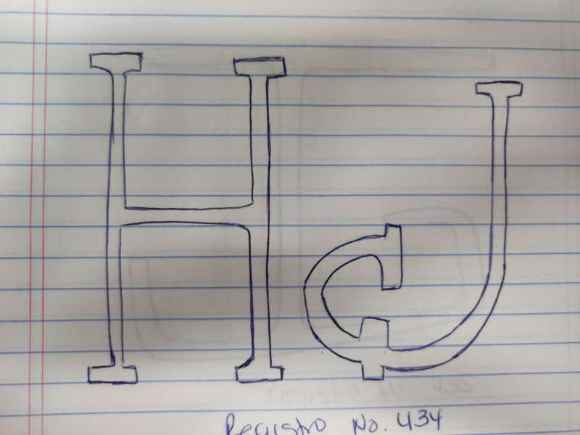 HJ
Registro No. 434